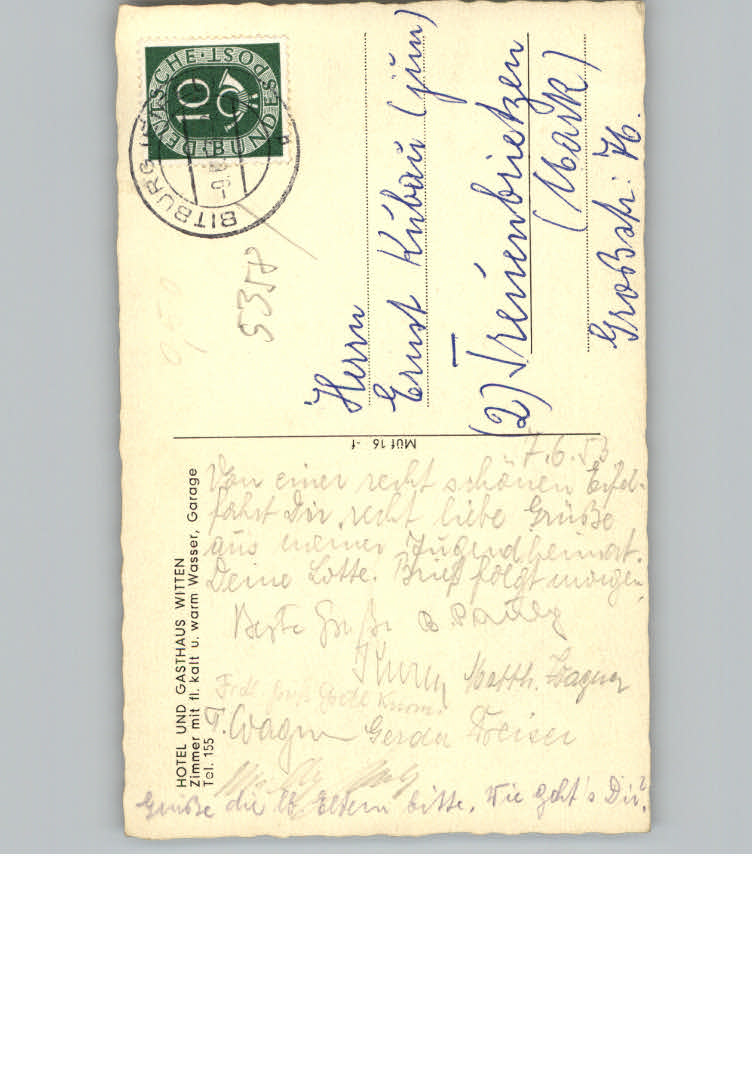 HOTEL UND GASTHAUS WITTEN
Zimmer mit fl. kalt u. warm Wasser, Garage
Tel. 155
7.6.53
Von einer recht schönen Eifel-
fahrt Dir recht liebe Grüße
aus meiner Jugendheimat.
Deine Lotte. Brief folgt morgen
Beste Grüße
Matth. Wagner
T. Wagner Gerda
Grüße die lb Eltern bitte. Wie geht's Dir?
MüF 16 - f
DEUTSCHE BUNDESPOST
10
BITBURG
5358
Herrn
Ernst Kubau (jun)
(2) Treuenbrietzen
(Mark)
Großstr. 76.